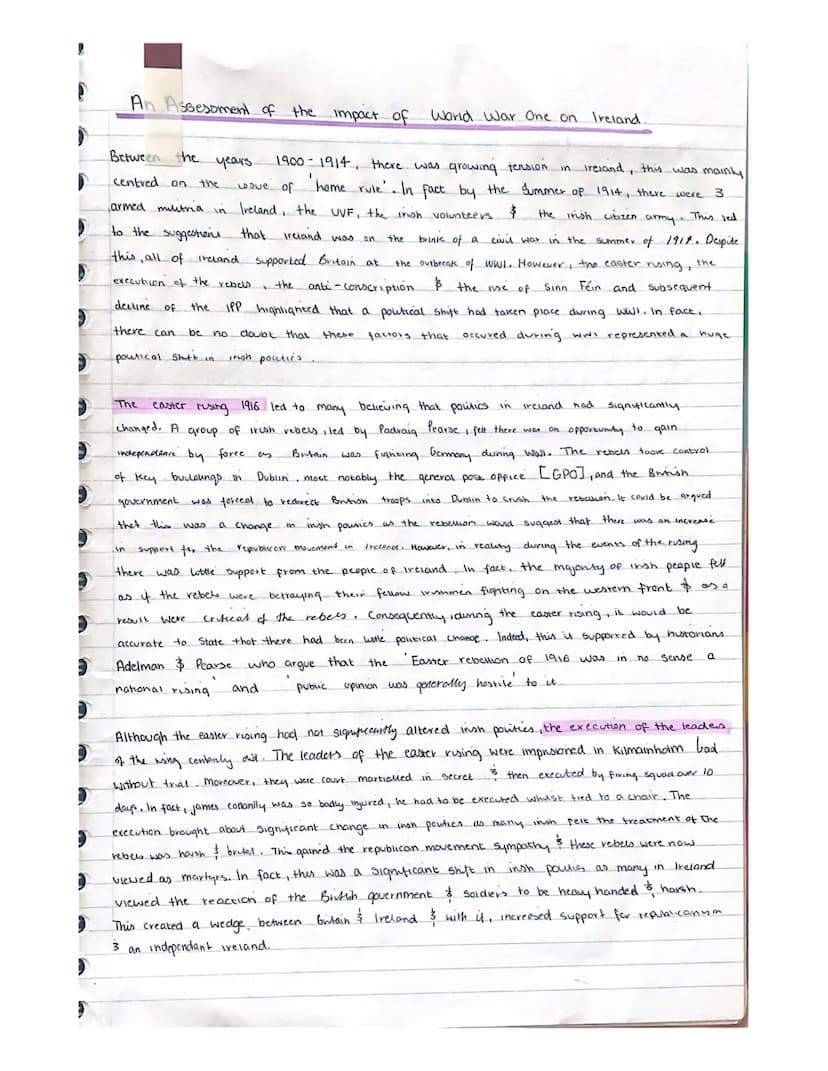 An Assessment of the impact of World War One on Ireland.
Between the years 1900-1914, there was growing tension in ireland, this was mainly
centred on the issue of 'home rule'. In fact by the Summer of 1914, there were 3
armed militia in Ireland, the UVF, the irish volunteers & the irish citizen army. This led
to the suggestions that ireland was on the brink of a civil war in the summer of 1914. Despite
this, all of ireland supported Britain at the outbreak of WW1. However, the easter rising, the
execution of the rebels, the anti-conscription & the rise of Sinn Féin and subsequent
decline of the IPP highlighted that a political shift had taken place during WWI. In fact,
there can be no doubt that these factors that occured during WW1 represented a huge
political shift in irish politics.
The easter rising 1916 led to many believing that politics in ireland had significantly
changed. A group of irish rebels, led by Padraig Pearse, felt there was an opportunity to gain
independence by force as Britain was fighting Germany during WW1. The rebels took control
of key buildings in Dublin, most notably the general post office [GPO], and the British
government was forced to redirect British troops into Dublin to crush the rebellion. It could be argued
that this was a change in irish politics as the rebellion would suggest that there was an increase
in support for the republican movement in Ireland. However, in reality during the events of the rising
there was little support from the people of ireland. In fact, the majority of irish people felt
as if the rebels were betraying their fellow irishmen fighting on the western front & as a
result were critical of the rebels. Consequently, during the easter rising, it would be
accurate to state that there had been little political change. Indeed, this is supported by historians
Adelman & Pearse who argue that the 'Easter rebellion of 1916 was in no sense a
national rising' and 'public opinion was generally hostile' to it.
Although the easter rising had not significantly altered irish politics, the execution of the leaders
of the rising certainly did. The leaders of the easter rising were imprisioned in Kilmainholm
without trial. Moreover, they were court martialled in secret & then executed by firing squad over 10
days. In fact, james was so badly injured, he had to be executed whilst tied to a chair. The
execution brought about significant change in irish politics as many irish felt the treatment of the
rebels was harsh & brutal. This gained the republican movement sympathy & these rebels were now
viewed as martyrs. In fact, this was a significant shift in irish politics as many in Ireland
viewed the reaction of the British government & soldiers to be heavy handed & harsh.
This created a wedge between Britain & Ireland & with it, increased support for republicanism
& an independant ireland.